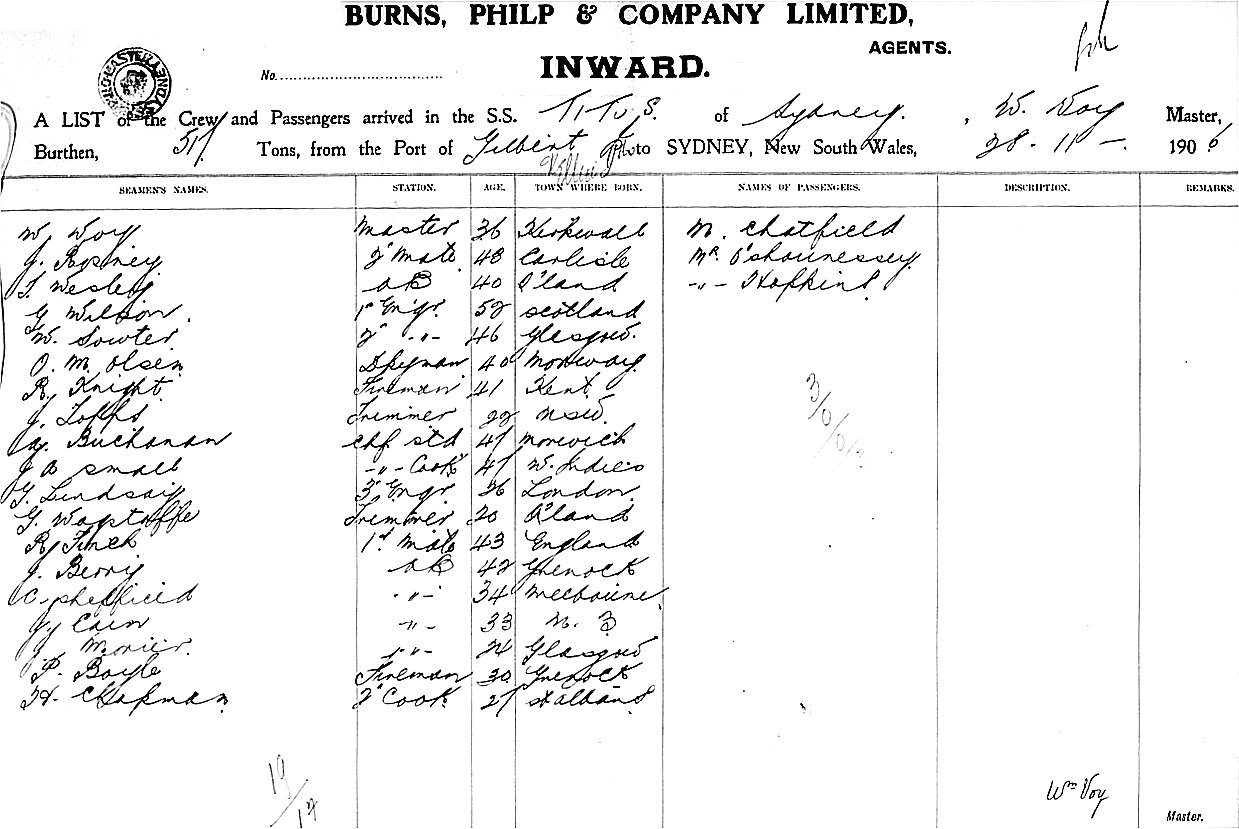 BURNS, PHILP & COMPANY LIMITED,
AGENTS.
INWARD.
No.
A LIST of the Crew and Passengers arrived in the S.S. Titus of Sydney. , W. Voy Master,
Burthen, 517 Tons, from the Port of Gilbert to SYDNEY, New South Wales, 28 - 11 - 1906
SEAMEN'S NAMES. STATION. AGE. TOWN WHERE BORN. NAMES OF PASSENGERS. DESCRIPTION. REMARKS.
W. Voy Master 36 Kirkwall M. Chatfield
J. Rodney 2d Mate 48 Carlisle Mr. O'Shounessey
T Wesley AB 40 A'land -"- Hopkins.
G Wilson. 1st Engr. 52 Scotland
W. Sowter 2d -"- 46 Glasgow.
O. M. Olsen Dkyman 40 Norway
R. Knight Fireman 41 Kent
J. Topps Trimmer 22 NSW.
A. Buchanan Chf Std 47 Norwich
J A Small -"- Cook 47 W. Indies
G. Lindsay 3d Engr 36 London
G. Wagstaffe Trimmer 20 A'land
R. Finch 1st Mate 43 England
J. Berry AB 42 Grenock
C. Sheffield -"- 34 Melbourne
J. Cain -"- 33 N. Z
J -"- 24 Glasgow
P. Boyle Fireman 30 Grenock
H. Chapman 2d Cook 27 St Albans
19
Wm Voy
Master.